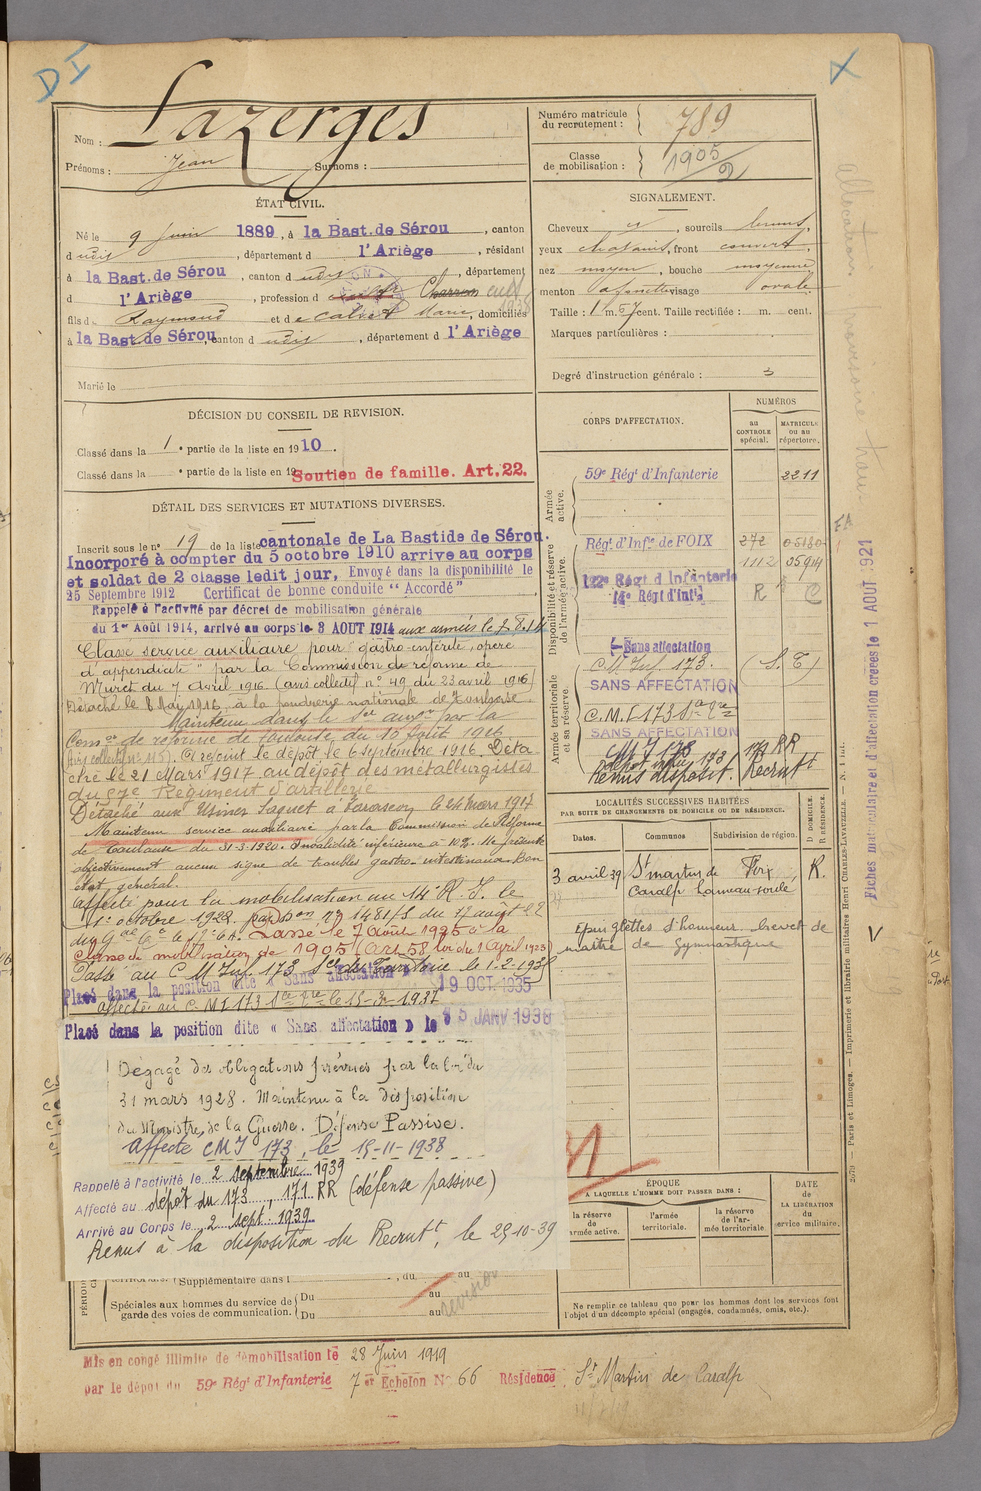 DI
X
Nom : Lazerges
Prénoms : Jean Surnoms :
Numéro matricule du recrutement : 789
Classe de mobilisation : 1905/2
ÉTAT CIVIL.
Né le 9 Juin 1889, à la Bast. de Sérou, canton
d udit, département d l'Ariège, résidant
à la Bast. de Sérou, canton d udit, département
d l'Ariège, profession d Charron cult
fils d Raymond et d e Calvet Marie, domiciliés
à la Bast. de Sérou, canton d udit, département d l'Ariège
Marié le
SIGNALEMENT.
Cheveux et, sourcils bruns,
yeux chatains, front couvert,
nez moyen, bouche moyenne
menton à fossette visage ovale
Taille : 1 m. 57 cent. Taille rectifiée : m. cent.
Marques particulières :
Degré d'instruction générale : 3
DÉCISION DU CONSEIL DE REVISION.
Classé dans la 1e partie de la liste en 1910.
Classé dans la e partie de la liste en 19
Soutien de famille. Art. 22.
DÉTAIL DES SERVICES ET MUTATIONS DIVERSES.
Inscrit sous le no 19 de la liste cantonale de La Bastide de Sérou.
Incorporé à compter du 5 octobre 1910 arrive au corps
et soldat de 2 classe ledit jour, Envoyé dans la disponibilité le
25 Septembre 1912 Certificat de bonne conduite "Accordé"
Rappelé à l'activité par décret de mobilisation générale
du 1er Août 1914, arrivé au corps le 3 AOUT 1914 aux armées le 7.8.14
Classé service auxiliaire pour "gastro-entérite, opéré
d'appendicite" par la Commission de réforme de
Muret du 7 Avril 1916 (avis collectif no 49 du 23 avril 1916)
Détaché le 8 Mai 1916 à la poudrerie nationale de Toulouse
Maintenu dans le Sce auxre par la
Comon de réforme de Toulouse du 10 Août 1916
(Avis collectif no 115). A rejoint le dépôt le 6 septembre 1916. Déta
ché le 21 Mars 1917 au dépôt des métallurgistes
du 57e Régiment d'artillerie
Détaché aux Usines Saquet à Tarascon le 24 mars 1917
Maintenu service auxiliaire par la Commission de Réforme
de Toulouse du 31-3-1920. Invalidité inférieure à 10%. Ne présente
objectivement aucun signe de troubles gastro-intestinaux. Bon
état général.
Affecté pour la mobilisation au 14e R. I. le
1er octobre 1922 par no 1481/S du 17 août 22
Passé le 7 Août 1925 à la
classe de mobilisation de 1905 (Art 58 loi du 1 Avril 1923)
Passé au C M Inf. 173 Sce du Territoire le 1-2-193
Placé dans la position dite « Sans affectation » le 19 OCT. 1935
affecté au C.M.I 173 le 15-3-1937
Placé dans la position dite « Sans affectation » le 15 JANV 1938
Dégagé des obligations prévues par la loi du
31 mars 1928. Maintenu à la disposition
du Ministre de la Guerre. Défense Passive.
Affecté CMI 173, le 15-11-1938
Rappelé à l'activité le 2 septembre 1939
Affecté au dépôt du 173, 171 RR (défense passive)
Arrivé au Corps le 2 sept. 1939
Remis à la disposition du Recrutt, le 25-10-39
Supplémentaire dans l , du au
Spéciales aux hommes du service de garde des voies de communication. { Du au
Du au
revision
Mis en congé illimité de démobilisation le 28 Juin 1919
par le dépôt du 59e Régt d'Infanterie 7er Echelon No 66 Résidence St Martin de Caralp
CORPS D'AFFECTATION.
NUMÉROS
au CONTROLE spécial.
MATRICULE ou au répertoire.
Armée active.
59e Régt d'Infanterie 2211
Disponibilité et réserve de l'armée active.
Régt d'Infie de FOIX 272 05180
1112 05914
122e Régt d'Infanterie
14e Régt d'Inf. R C
Sans affectation
Armée territoriale et sa réserve.
C. M Inf. 173. (S. T)
SANS AFFECTATION
C.M.I 173
SANS AFFECTATION
CMI 173
dépôt infie 173 171 RR
Remis disposit. Recrutt
LOCALITÉS SUCCESSIVES HABITÉES
PAR SUITE DE CHANGEMENTS DE DOMICILE OU DE RÉSIDENCE.
Dates. Communes Subdivision de région. D DOMICILE. R RÉSIDENCE.
3 avril 39 St martin de Caralp hameau-soulé Foix, R.
Epinglettes d'honneur. brevet de
maitre de gymnastique
ÉPOQUE
A LAQUELLE L'HOMME DOIT PASSER DANS :
la réserve de l'armée active.
l'armée territoriale.
la réserve de l'armée territoriale.
DATE de LA LIBÉRATION du service militaire.
Ne remplir ce tableau que pour les hommes dont les services font
l'objet d'un décompte spécial (engagés, condamnés, omis, etc.).
Fiches matriculaire et d'affectation créées le 1 AOUT 1921
Paris et Limoges. — Imprimerie et librairie militaires Henri CHARLES-LAVAUZELLE.